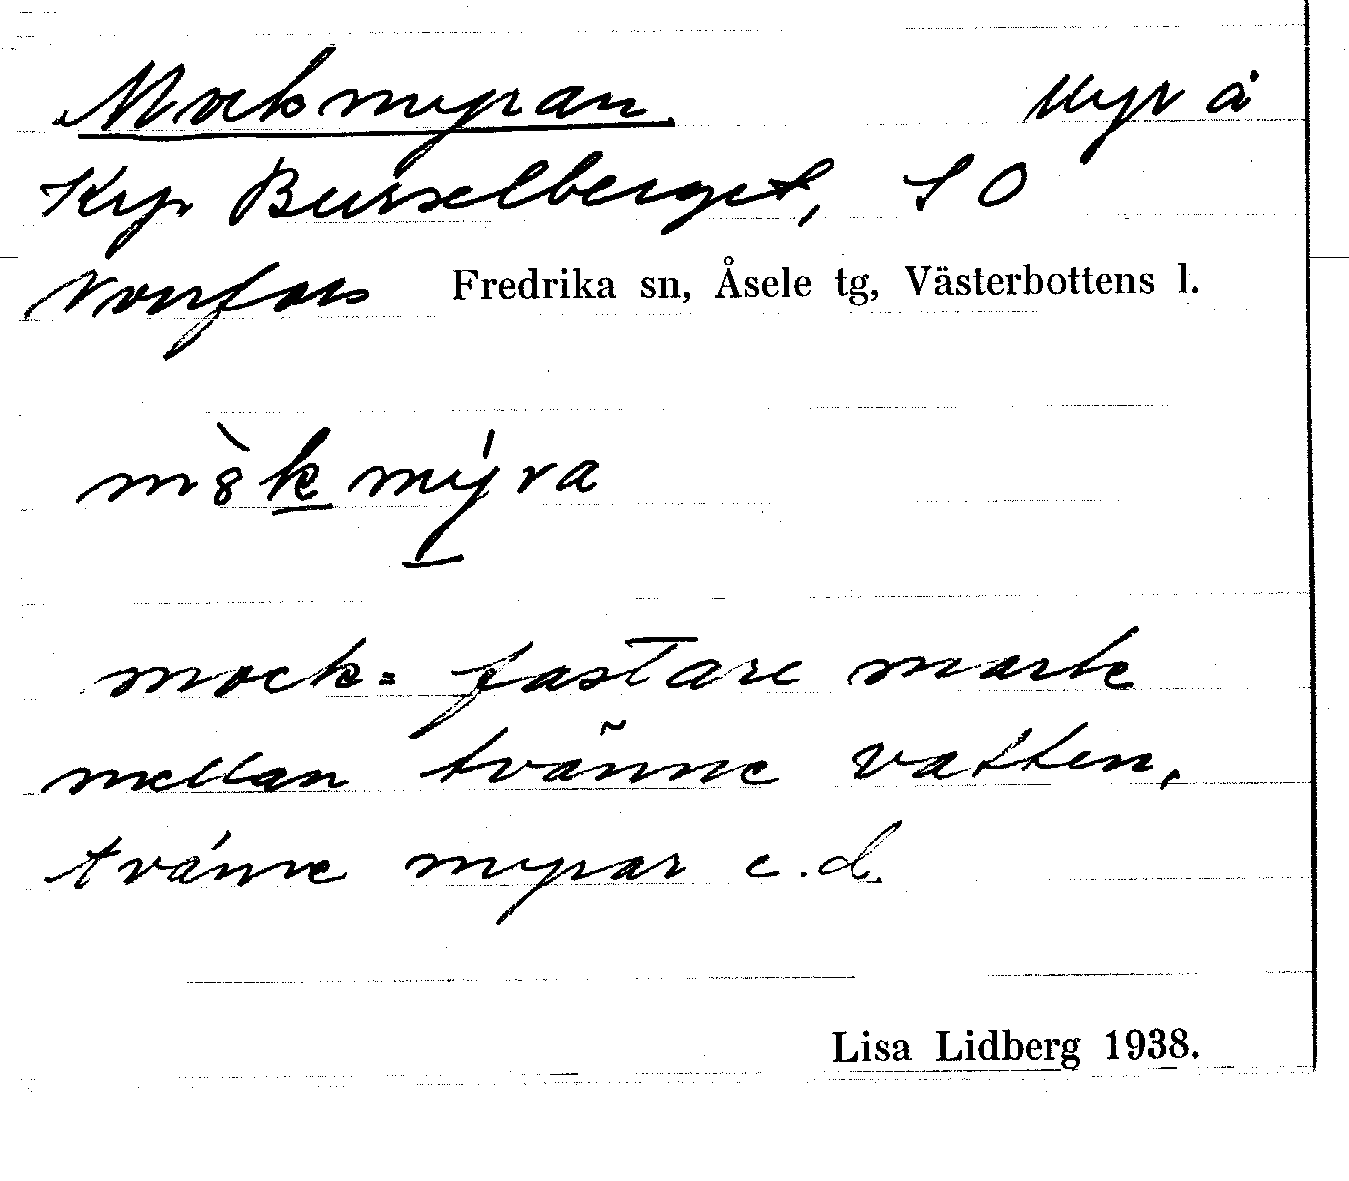 Mockmyran. Myr å
Krp Bursselberget, S O
Norrfors Fredrika sn, Åsele tg, Västerbottens l.
mò̀kmýra
mock = fastare mark
mellan tvänne vatten,
tvänne myrar e.d.
Lisa Lidberg 1938.